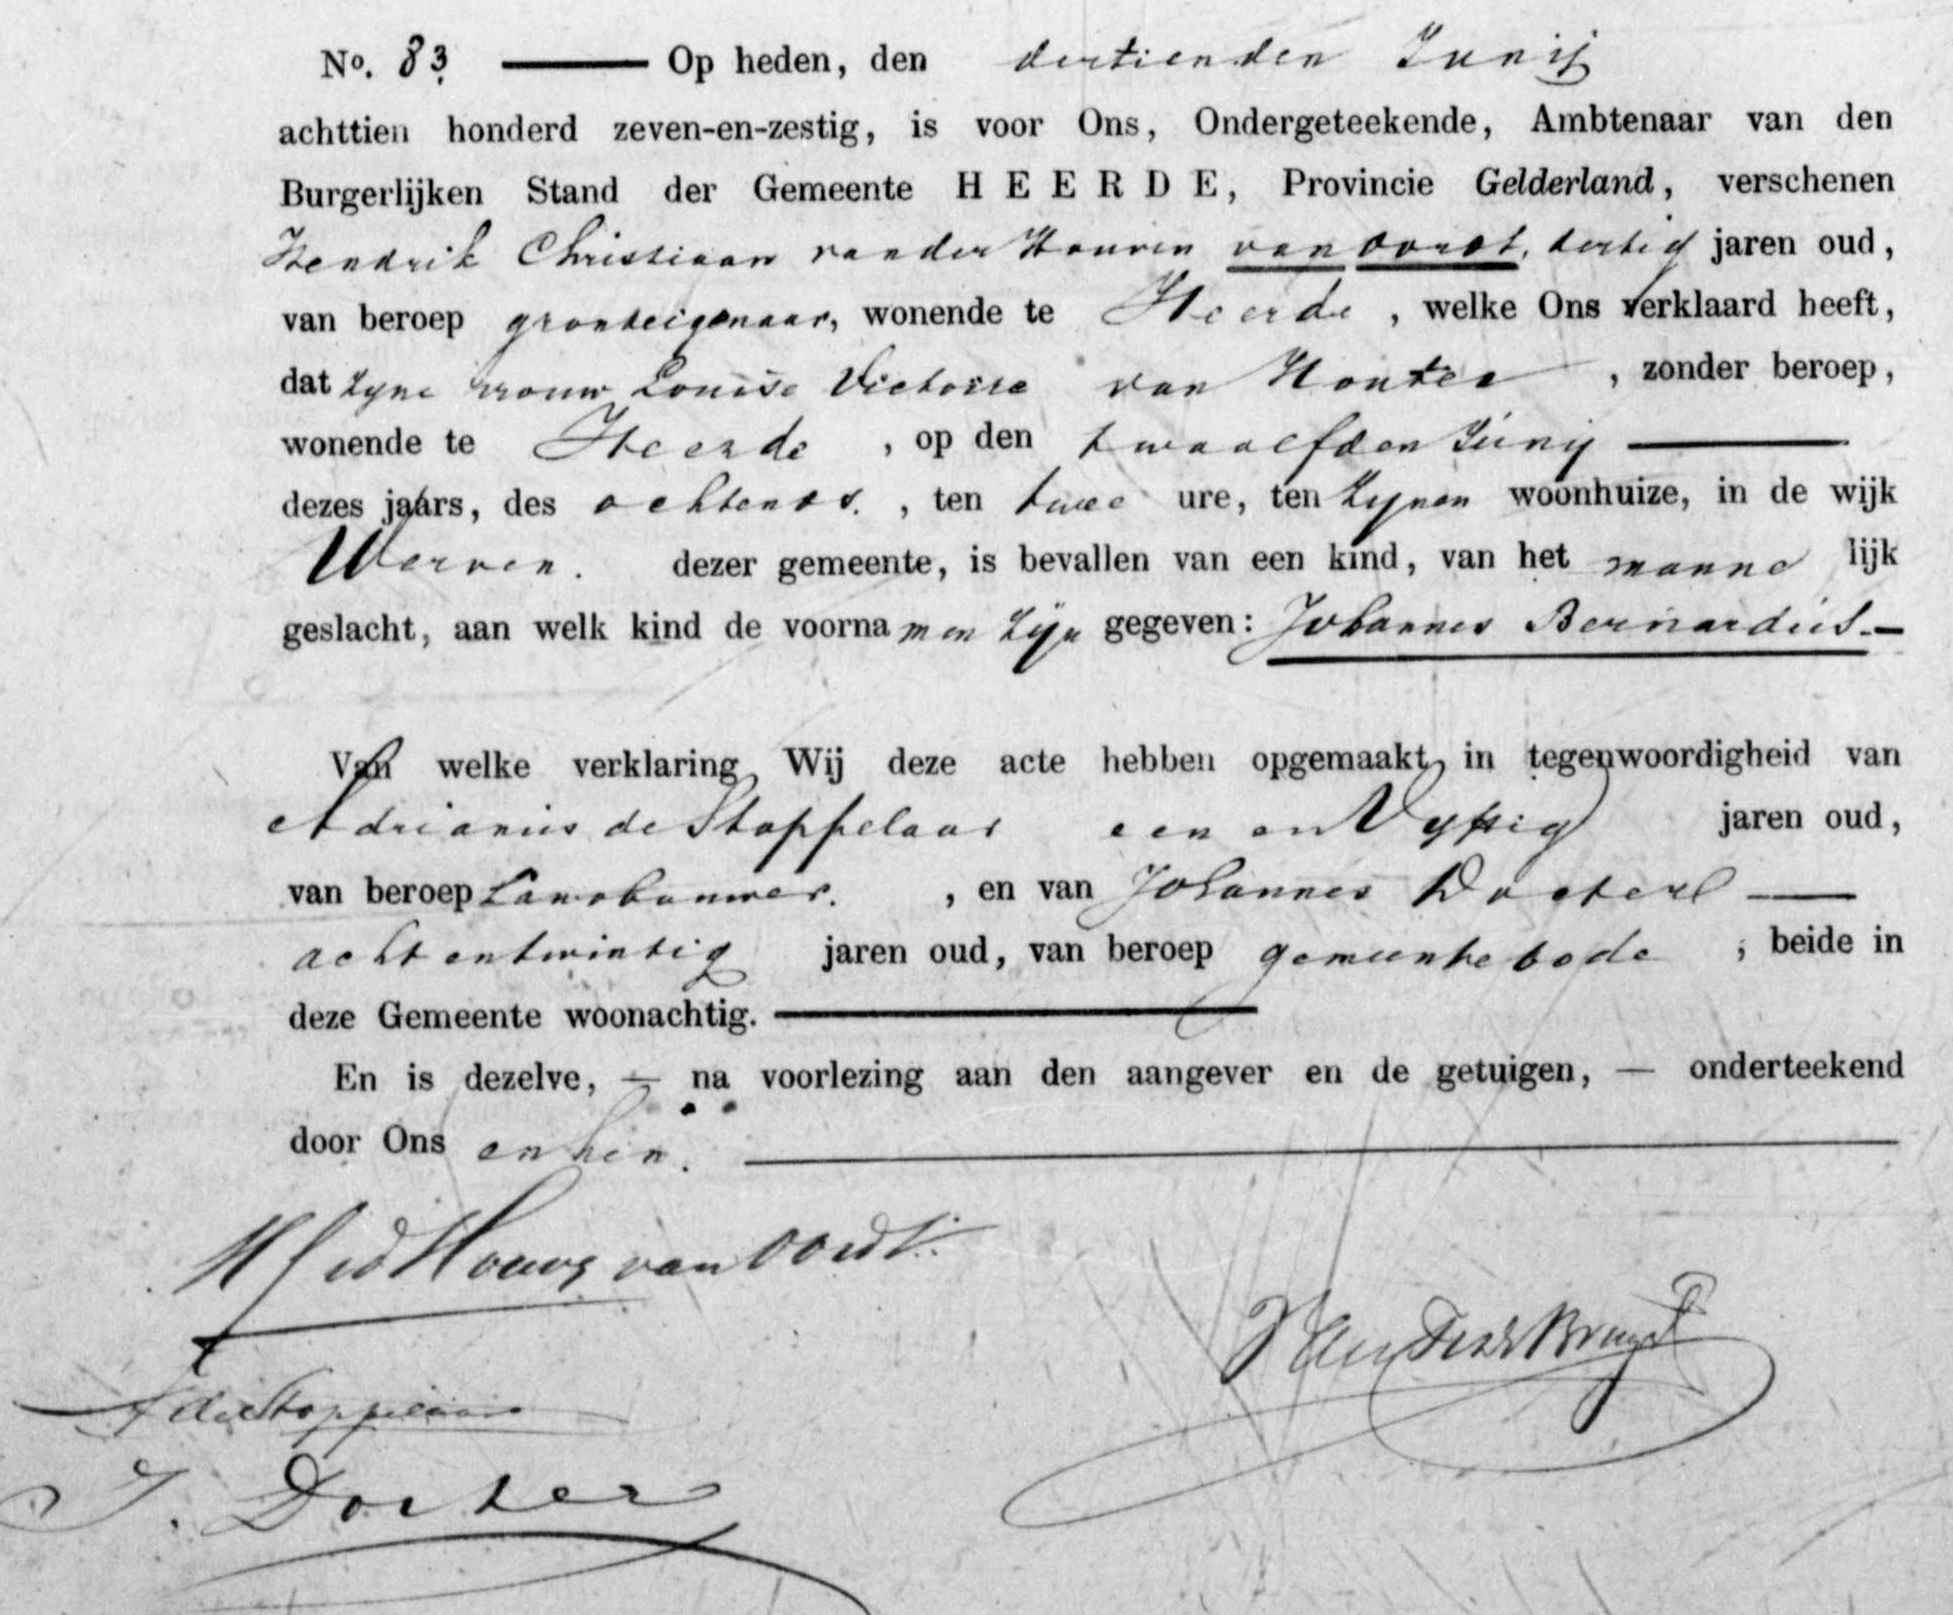 No. 83 Op heden, den dertienden Junij
achttien honderd zeven-en-zestig, is voor Ons, Ondergeteekende, Ambtenaar van den
Burgerlijken Stand der Gemeente HEERDE, Provincie Gelderland, verschenen
Hendrik Christiaan van der Houven van Oordt, dertig jaren oud,
van beroep grondeigenaar, wonende te Heerde, welke Ons verklaard heeft,
dat zyne vrouw Louise Victoire van , zonder beroep,
wonende te Heerde, op den twaalfden Junij
dezes jaars, des ochtends, ten twee ure, ten zynen woonhuize, in de wijk
Werven. dezer gemeente, is bevallen van een kind, van het manne lijk
geslacht, aan welk kind de voornamen zijn gegeven: Johannes Bernardus.
Van welke verklaring Wij deze acte hebben opgemaakt, in tegenwoordigheid van
Adrianus de Stoppelaar een en Vyftig jaren oud,
van beroep Landbouwer., en van Johannes Docter
acht en twintig jaren oud, van beroep gemeente bode, beide in
deze Gemeente woonachtig.
En is dezelve, — na voorlezing aan den aangever en de getuigen, — onderteekend
door Ons en hen.
HCvdHouven van Oordt
A de Stoppelaar
J. Docter